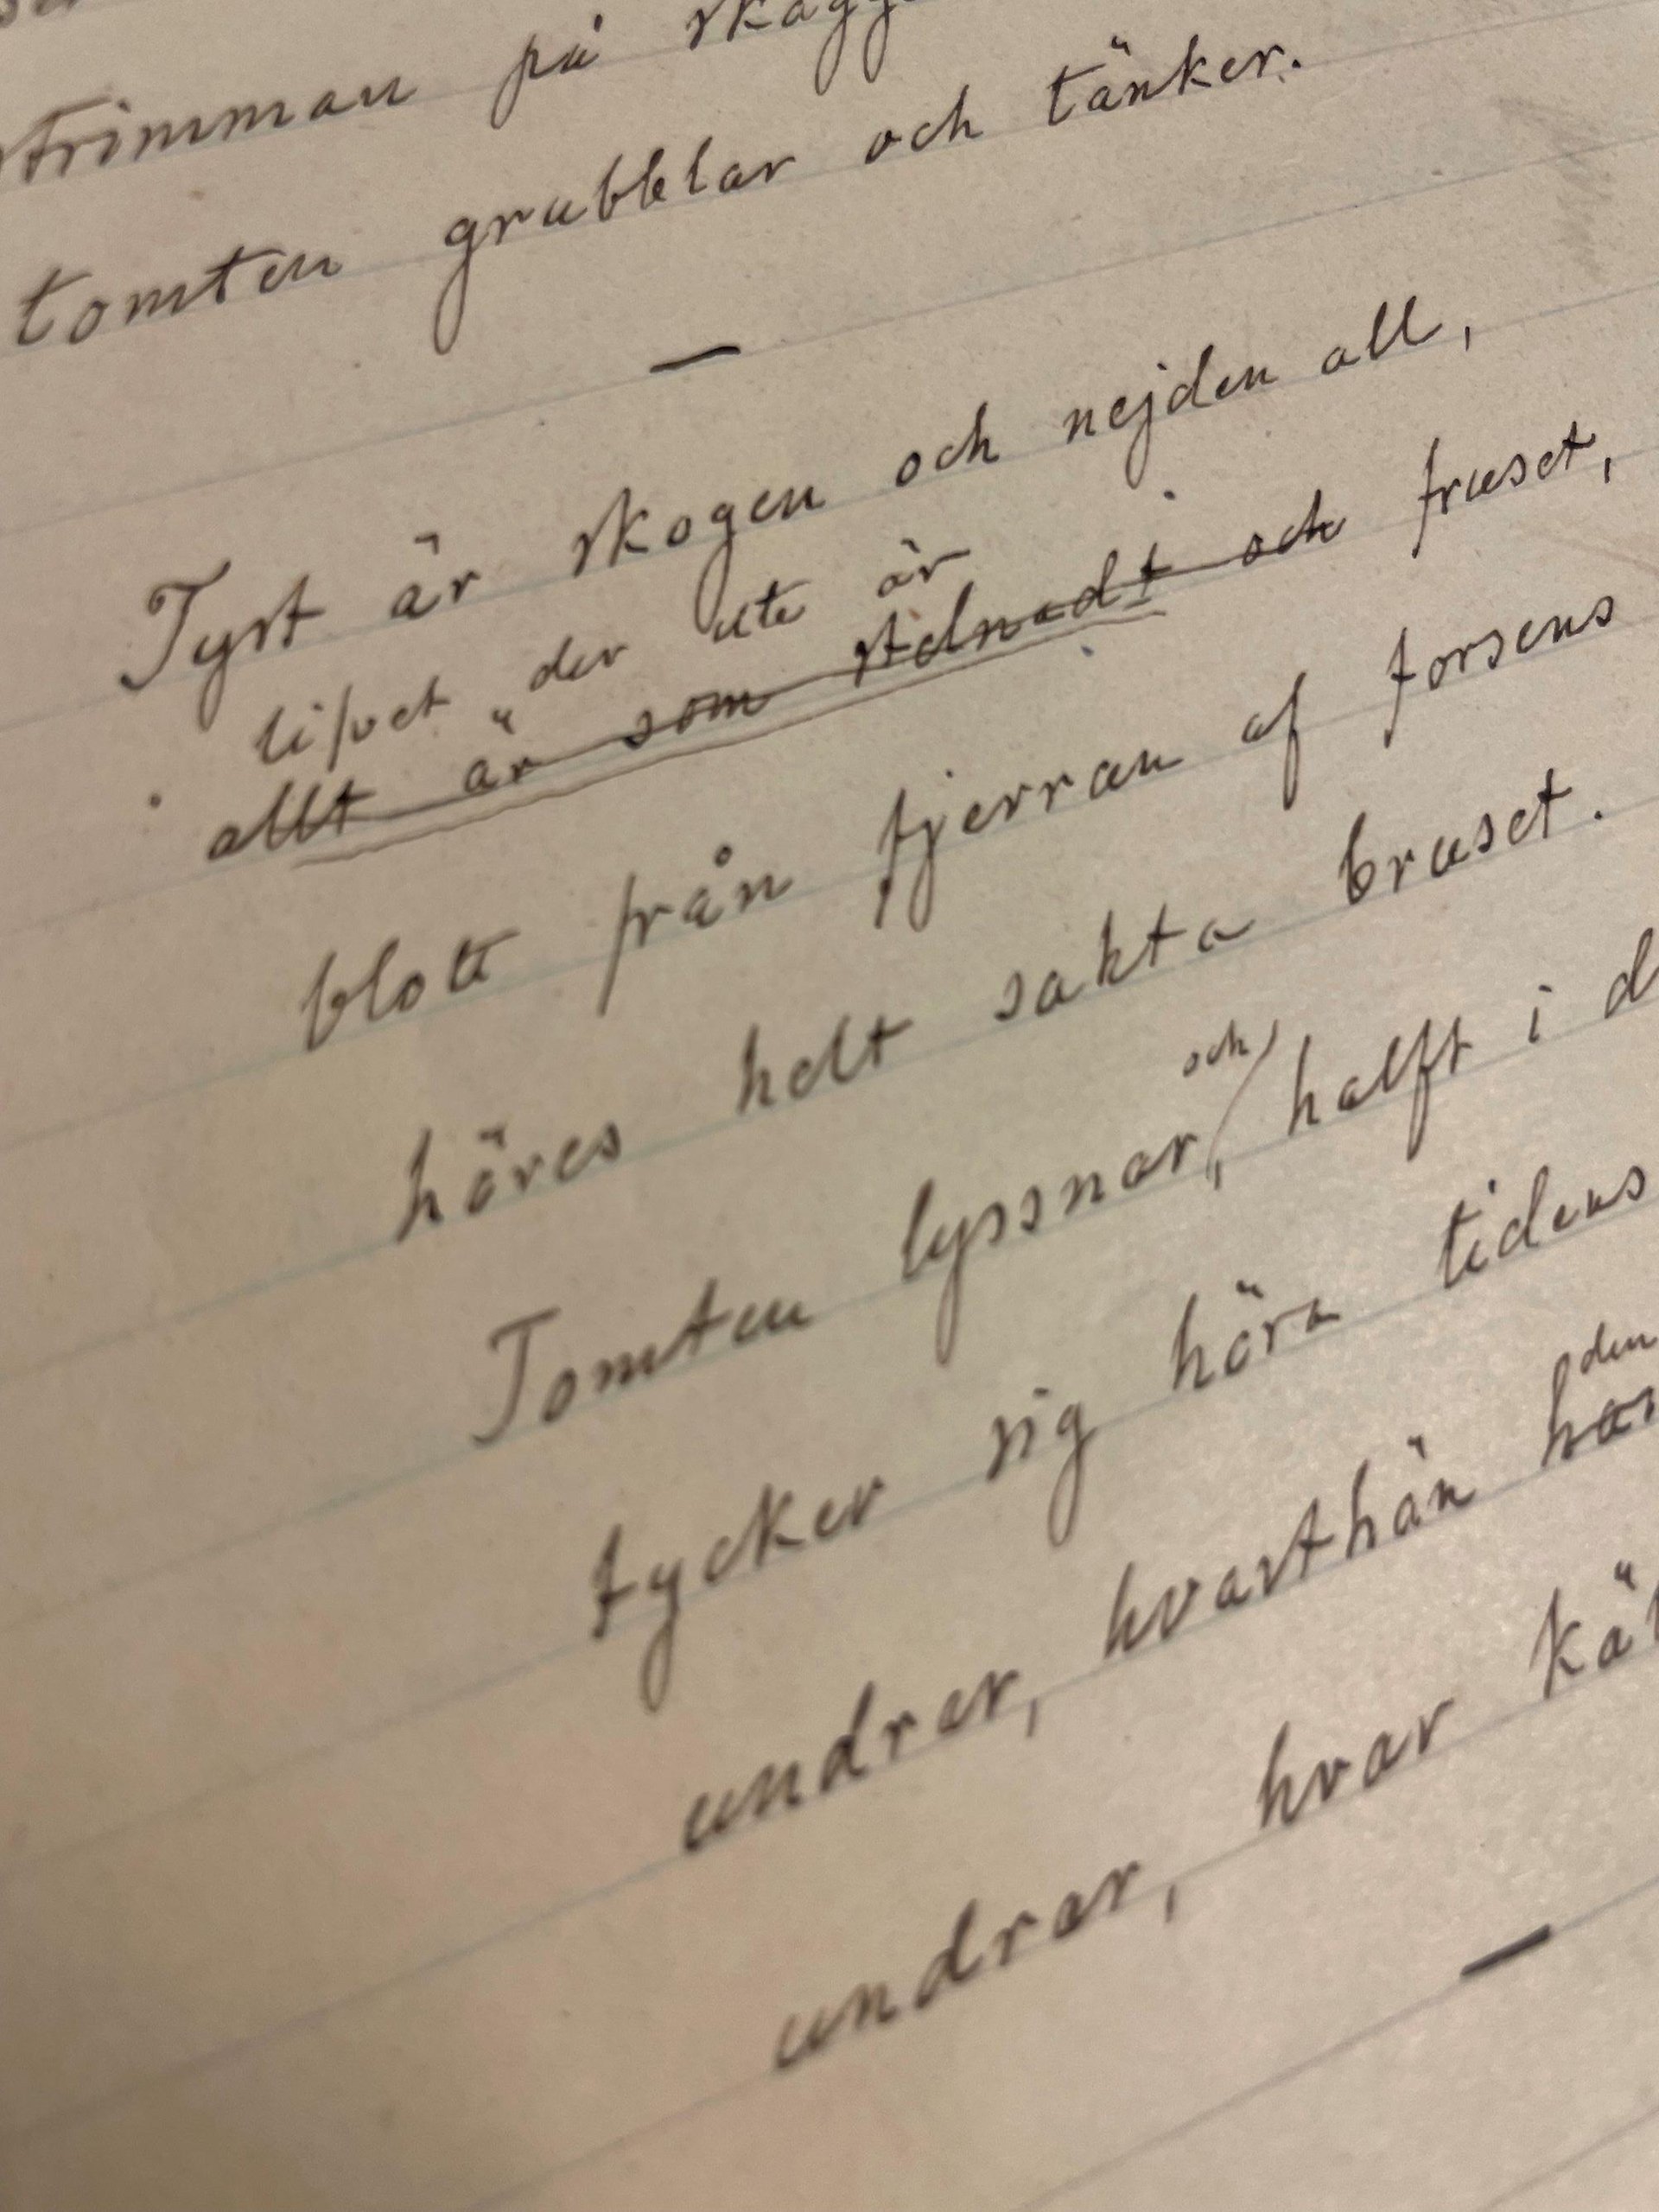 strimman på
tomten grubblar och tänker.
—
Tyst är skogen och nejden all,
lifvet der ute är
allt är som stelnadt och fruset,
blott från fjerran af forsens
höres helt sakta bruset.
och
Tomten lyssnar, halft i
tycker sig höra tidens
den
undrar, hvarthän
undrar, hvar
—